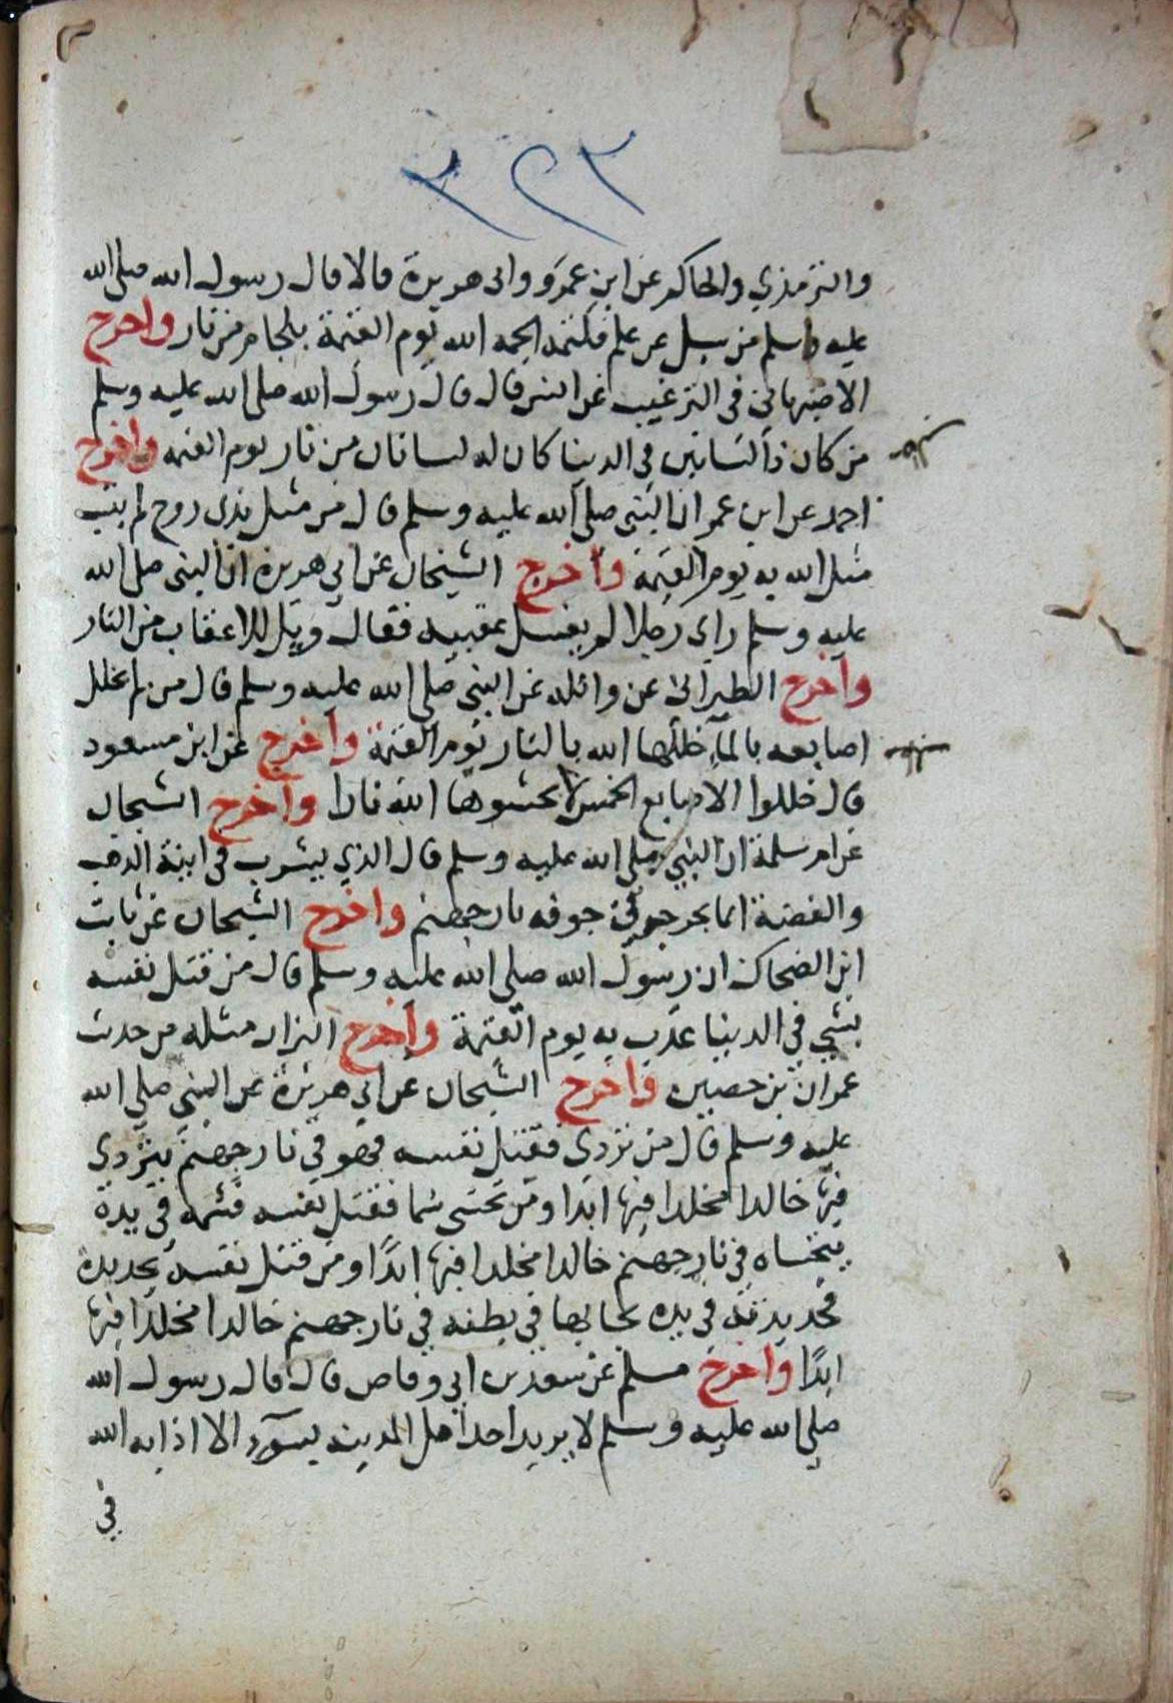 ٣٢٣
والترمذي والحاكم عن ابن عمرو وابى هريرة قالا قال رسول الله صلى الله
عليه وسلم من سيل عن علم فكتمه الجمه الله يوم القيمة بلجام من نار واخرج
الاصبهاني في الترغيب عن انس قال قال رسول الله صلى الله عليه وسلم
من كان ذا لسانين في الدنيا كان له لسانان من نار يوم القيمه واخرج
احمد عن ابن عمر ان النبي صلى الله عليه وسلم قال من مثل بذى روح لم يتب
مثل الله به يوم القيمة واخرج الشيخان عن ابي هريرة ان النبي صلى الله
عليه وسلم راى رجلا لم يغسل عقبيه فقال ويل للاعقاب من النار
واخرج الطبرانى عن واثله عن النبي صلى الله عليه وسلم قال من لم يخلل
اصابعه بالماء خللها الله بالنار يوم القيمة واخرج عن ابن مسعود
قال خللوا الاصابع الخمس لا يحشوها الله نارا واخرج الشيخان
عن ام سلمة ان النبي صلى الله عليه وسلم قال الذي يشرب في انية الذهب
والفضة انما يجرجر في جوفه نار جهنم واخرج الشيخان عن ثابت
ابن الضحاك ان رسول الله صلى الله عليه وسلم قال من قتل نفسه
بشي في الدنيا عذب به يوم القيمة واخرج البزار مثله من حديث
عمران بن حصين واخرج الشيخان عن ابي هريرة عن النبي صلى الله
عليه وسلم قال من تردى فقتل نفسه فهو في نار جهنم يتردي
فيها خالدا مخلدا فيها ابدا ومن تحسى سما فقتل نفسه فسمه في يده
يتحساه في نار جهنم خالدا مخلدا فيها ابدًا ومن قتل نفسه بحديدة
فحديدته في يده يجا بها في بطنه في نار جهنم خالدا مخلدًا فيها
ابدًا واخرج مسلم عن سعد بن ابي وقاص قال قال رسول الله
صلى الله عليه وسلم لا يريد احد اهل المدينه بسوء الا اذابه الله
في